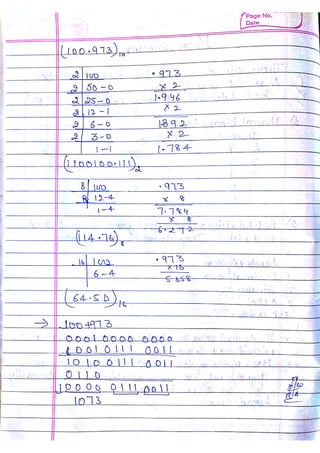 Page No.
Date
(100.973)10
2 | 100
2 | 50-0
2 | 25-0
2 | 12-1
2 | 6-0
2 | 3-0
1-1
.973
× 2
1.946
× 2
1.892
× 2
1.784
(1100100.111)2
8 | 100
8 | 12-4
1-4
.973
× 8
7.784
× 8
6.272
(114.76)8
16 | 100
6-4
.973
×16
(64.5D)16
→ 100+973
0001 0000 0000
1001 0111 0011
1010 0111 0011
0110
10000 0111 0011
1073